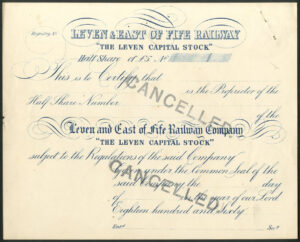 Registry No
LEVEN & EAST OF FIFE RAILWAY
"THE LEVEN CAPITAL STOCK"
Half Share of £5 No
This is to Certify that
is the Proprietor of the
Half Share Number
of the
Leven and East of Fife Railway Company
"THE LEVEN CAPITAL STOCK"
subject to the Regulations of the said Company
Given under the Common Seal of the
said Company the day
of in the year of our Lord
Eighteen hundred and sixty
CANCELLED
CANCELLED